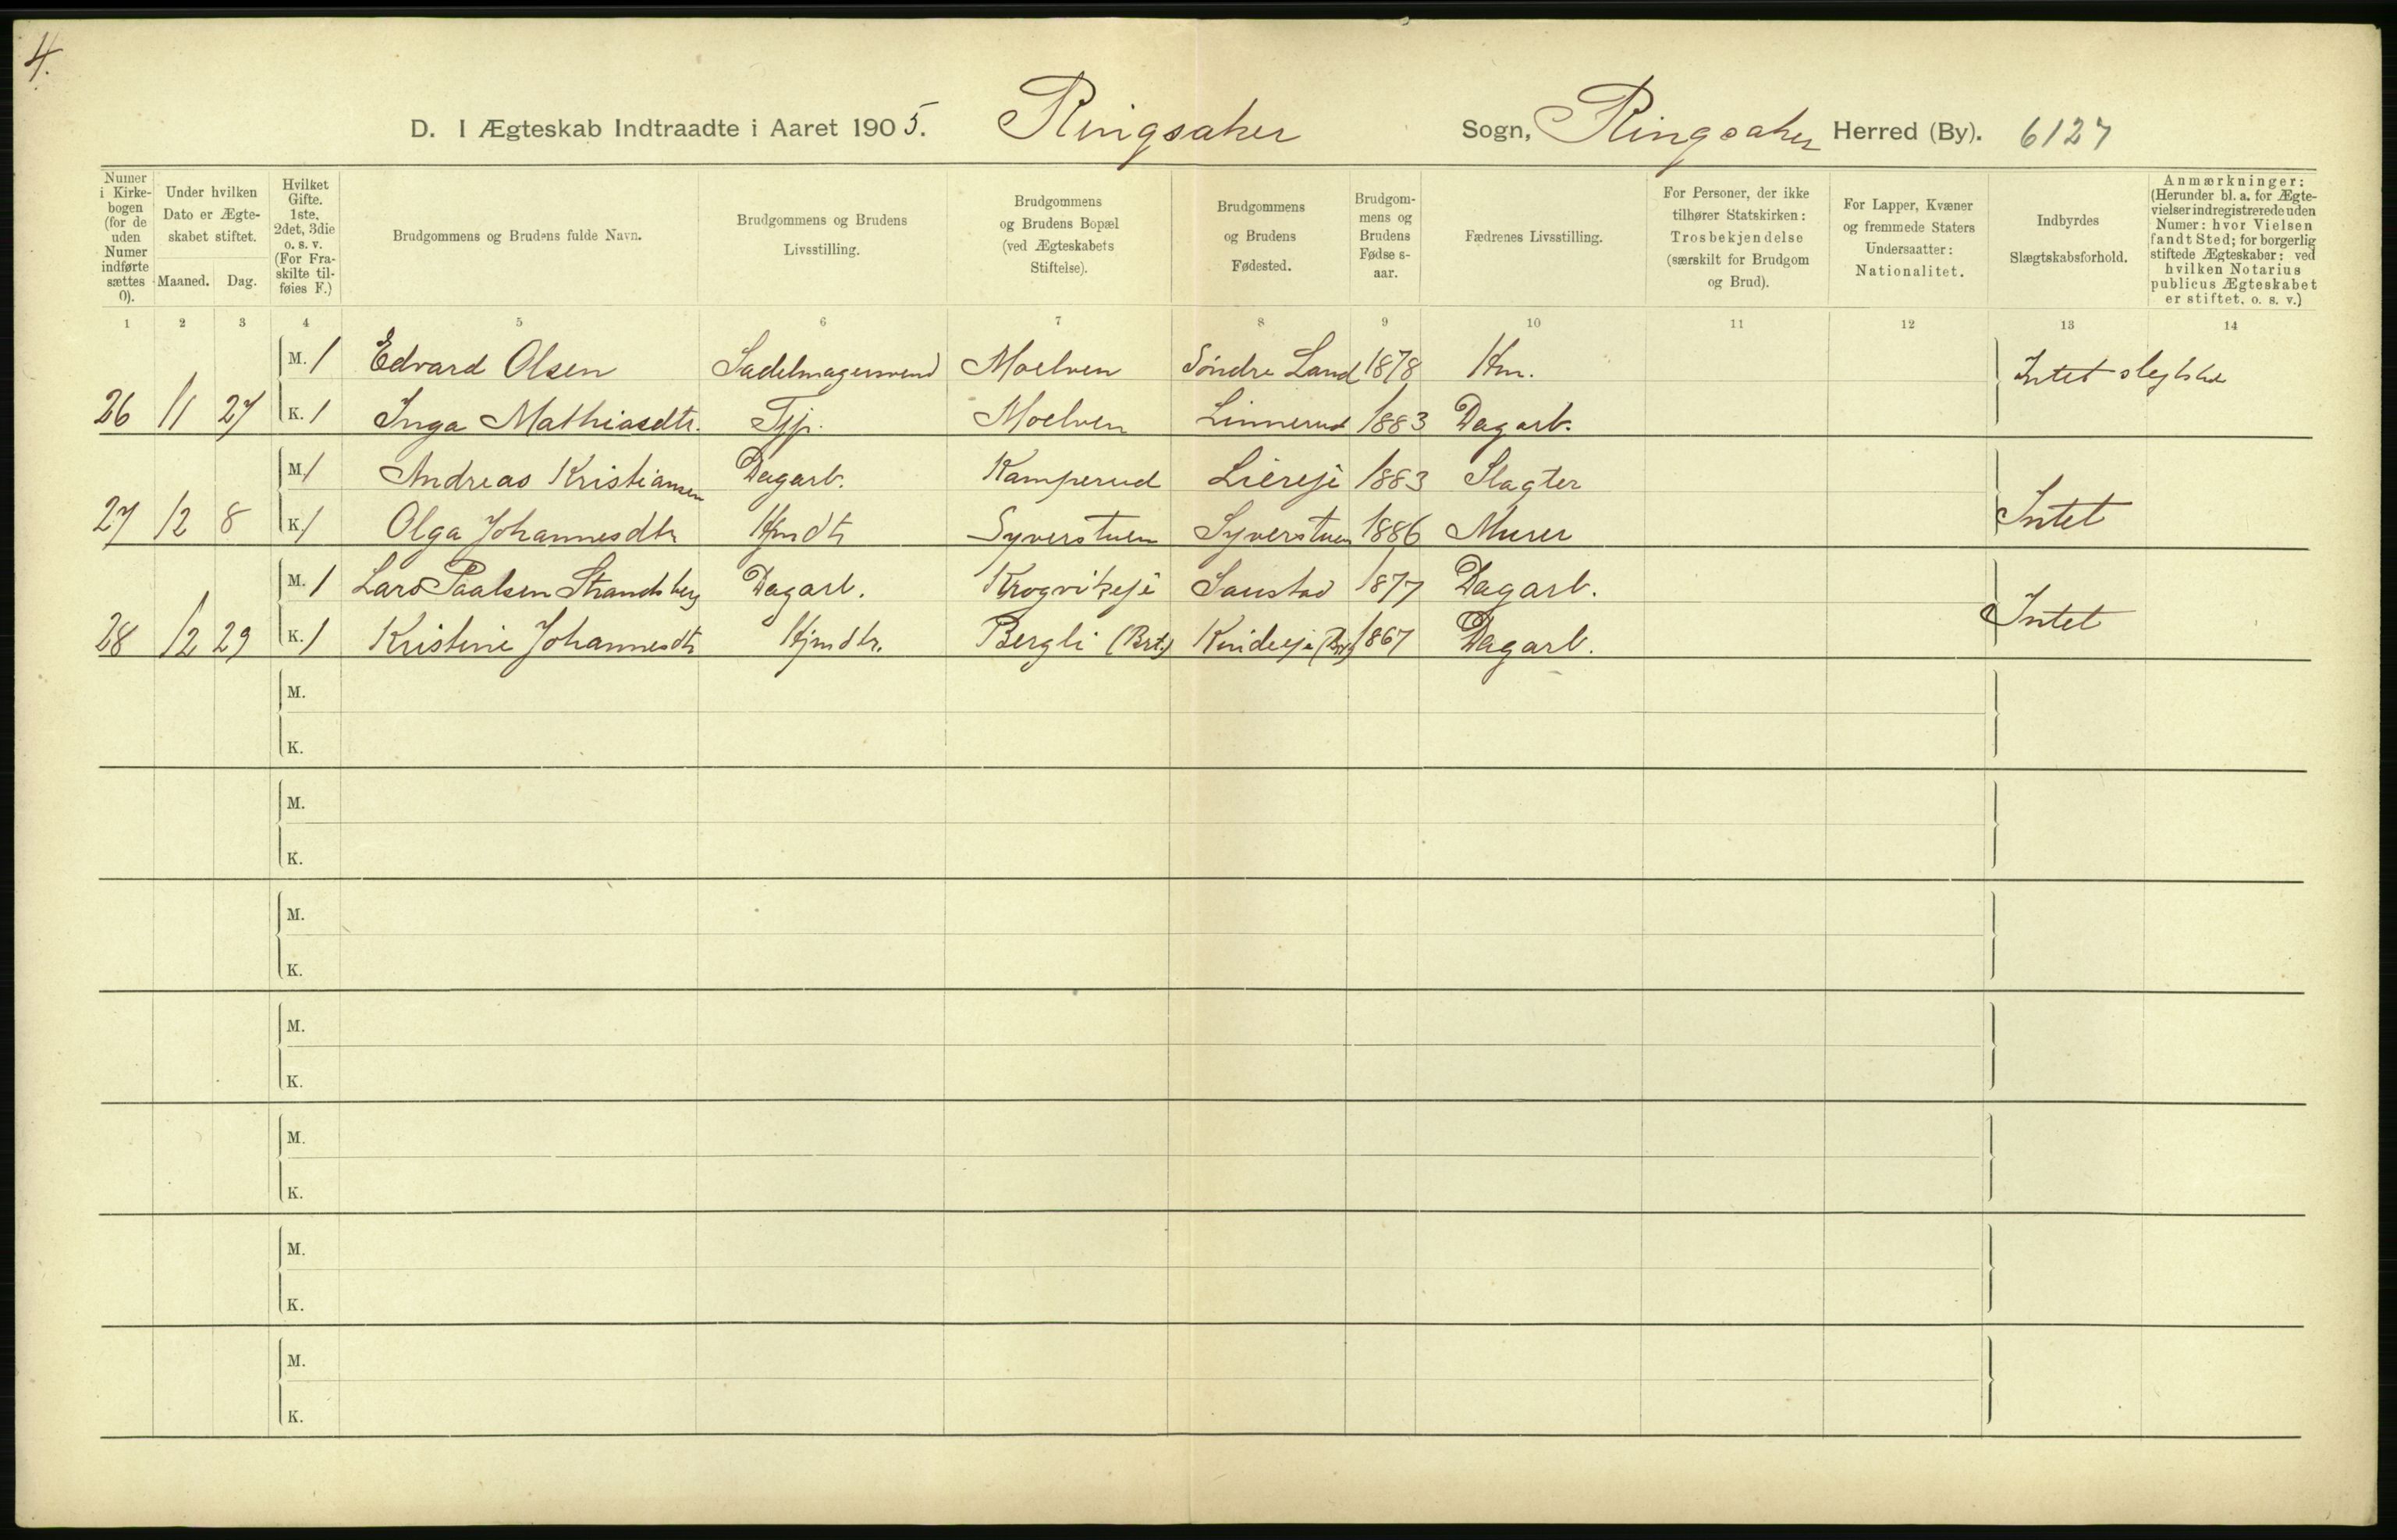 4.
D. I Ægteskab Indtraadte i Aaret 1905. Ringsaker Sogn, Ringsaker Herred (By). 6127
Numer i Kirkebogen (for de uden Numer indførte sættes 0). Under hvilken Dato er Ægteskabet stiftet. Maaned. Dag. Hvilket Gifte. 1ste, 2det, 3die o. s. v. (For Fraskilte tilføies F.) Brudgommens og Brudens fulde Navn. Brudgommens og Brudens Livsstilling. Brudgommens og Brudens Bopæl (ved Ægteskabets Stiftelse). Brudgommens og Brudens Fødested. Brudgommens og Brudens Fødse s-aar. Fædrenes Livsstilling. For Personer, der ikke tilhører Statskirken: Trosbekjendelse (særskilt for Brudgom og Brud). For Lapper, Kvæner og fremmede Staters Undersaatter: Nationalitet. Indbyrdes Slægtskabsforhold. Anmærkninger: (Herunder bl. a. for Ægtevielser indregistrerede uden Numer: hvor Vielsen fandt Sted; for borgerlig stiftede Ægteskaber: ved hvilken Notarius publicus Ægteskabet er stiftet. o. s. v.)
1 2 3 4 5 6 7 8 9 10 11 12 13 14
M. 1 Edvard Olsen Sadelmagersvend Moelven Søndre Land 1878 Hm. Intet
26 11 27 K. 1 Inga Mathiasdtr. Tjp. Moelven Linnerud 1883 Dagarb.
M. 1 Andreas Kristiansen Dagarb. Kamperud Liereje 1883 Slagter
27 12 8 K. 1 Olga Johannesdtr Hjmdtr Syverstuen Syverstuen 1886 Murer Intet
M. 1 Lars Paalsen Strandsberg Dagarb. Krogvikeje Saustad 1877 Dagarb.
28 12 29 K. 1 Kristine Johannesdtr Hjmdtr. Bergli (Brt.) (Brt.) 1867 Dagarb. Intet
M.
K.
M.
K.
M.
K.
M.
K.
M.
K.
M.
K.
M.
K.